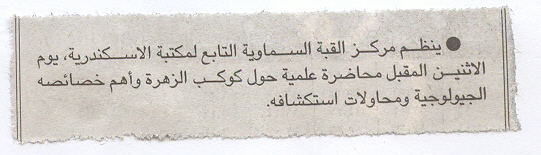 ● ينظم مركز القبة السماوية التابع لمكتبة الاسكندرية، يوم
الاثنين المقبل محاضرة علمية حول كوكب الزهرة وأهم خصائصه
الجيولوجية ومحاولات استكشافه.